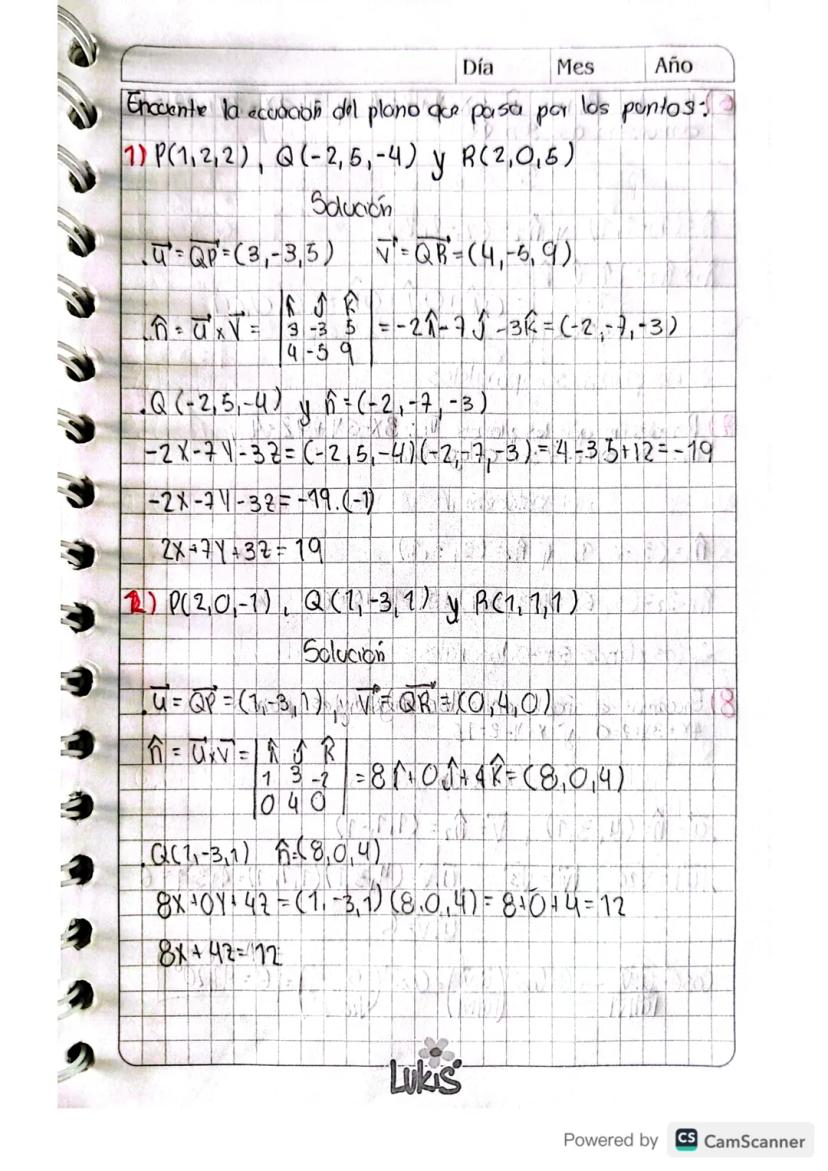 Día Mes Año
Encuentre la ecuación del plano que pasa por los puntos:
1) P(1,2,2), Q(-2,5,-4) y R(2,0,5)
Solución
. u⃗ = QP⃗ = (3,-3,5) v⃗ = QR⃗ = (4,-5,9)
. n̂ = u⃗ x v⃗ = | î ĵ k̂ | = -2î - 7ĵ - 3k̂ = (-2,-7,-3)
3 -3 5
4 -5 9
. Q(-2,5,-4) y n̂ = (-2,-7,-3)
-2x-7y-3z = (-2,5,-4)(-2,-7,-3) = 4-35+12 = -19
-2x-7y-3z = -19.(-1)
2x+7y+3z = 19
2) P(2,0,-1), Q(1,-3,1) y R(1,1,1)
Solución
. u⃗ = QP⃗ = (1,-3,1), v⃗ = QR⃗ = (0,4,0)
n̂ = u⃗ x v⃗ = | î ĵ k̂ | = 8î + 0ĵ + 4k̂ = (8,0,4)
1 3 -2
0 4 0
. Q(1,-3,1) n̂ = (8,0,4)
8x+0y+4z = (1,-3,1)(8,0,4) = 8+0+4 = 12
8x+4z = 12
Lukis
Powered by CS CamScanner